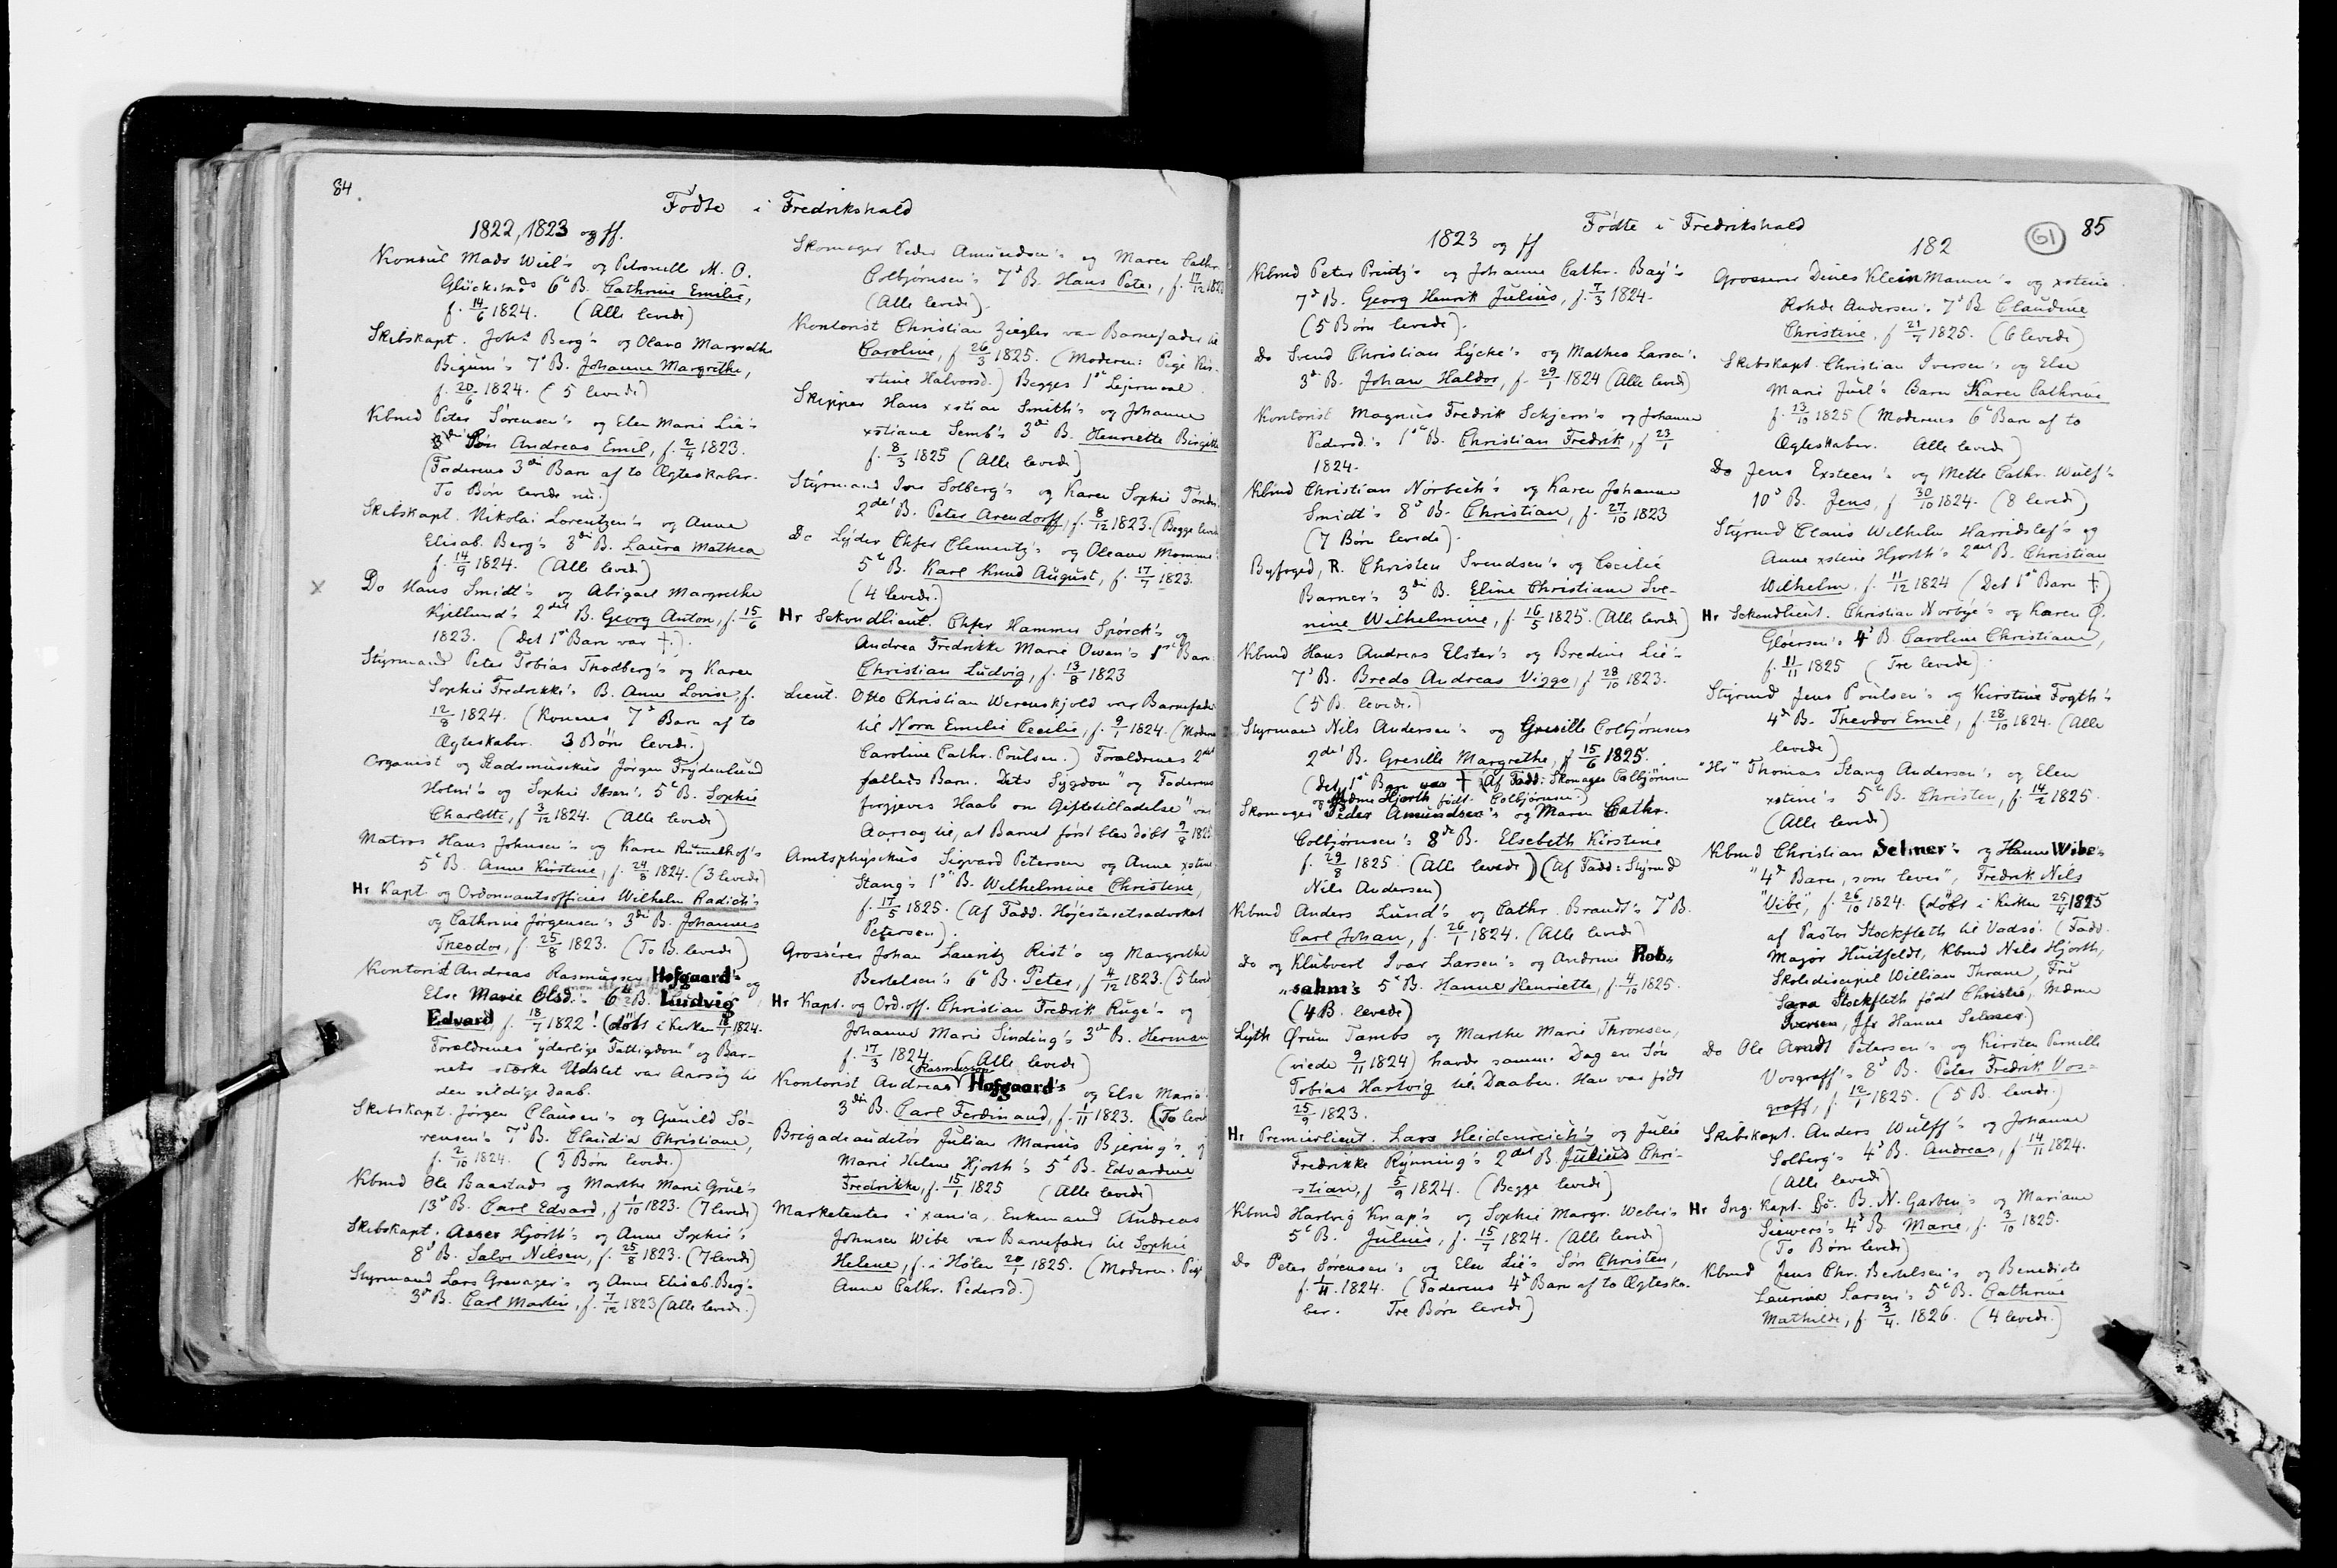 84.
Fødte i Fredrikshald
1822, 1823 og ff.
Konsul Mads Wiel's og Petronelle M. O.
Glückstads 6te B. Cathrine Emilie,
f. 14/6 1824. (Alle levede)
Skibskapt. Johs Berg's og Olava Margrethe
Bigum's 7de B. Johanne Margrethe,
f. 20/6 1824. (5 levede)
Kbmd Peter Sørensen's og Elen Marie Lie's
3die Søn Andreas Emil, f. 2/4 1823.
(Faderens 3die Barn af to Ægteskaber.
To Børn levede nu.)
Skibskapt. Nikolai Lorentzen's og Anne
Elisab. Berg's 3die B. Laura Mathea
f. 14/9 1824. (Alle levede)
x Do Hans Smidt's og Abigael Margrethe
Kjellund's 2det B. Georg Anton, f. 15/6
1823. (Det 1ste Barn var †.)
Styrmand Peter Tobias Thodberg's og Karen
Sophie Fredrikke's B. Anne Lovise, f.
12/8 1824. (Konens 7de Barn af to
Ægteskaber. 3 Børn levede.)
Organist og Stadsmusikus Jørgen Frydenlund
Holm's og Sophie Ibsen's 5te B. Sophie
Charlotte, f 3/12 1824. (Alle levede)
Matros Hans Johnsen's og Karen Rumelhof's
5te B. Anne Kirstine, f. 24/8 1824. (3 levede)
Hr Kapt. og Ordonnantsofficier Wilhelm Radich's
og Cathrine Jørgensen's 3die B. Johannes
Theodor, f. 25/8 1823. (To B. levede)
Kontorist Andreas Rasmussen Hofgaard's og
Else Marie Olsd.'s 6te B. Ludvig
Edvard, f. 18/7 1822! (døbt i Kirken 1824.
Forældrenes "yderlige Fattigdom" og Bar-
nets stærke Udslet var Aarsag til
den sildige Daab.
Skibskapt. Jørgen Clausen's og Gunild Sø-
rensen's 7de B. Claudia Christiane,
f. 2/10 1824. (3 Børn levede.)
Kbmd Ole Baastads og Marthe Marie Grue's
13de B. Carl Edvard, f 1/10 1823. (7 levede)
Skibskapt. Asser Hjorth's og Anne Sophie's
8de B. Salve Nilsen, f. 25/8 1823. (7 levede)
Styrmand Lars Grenager's og Anne Elisab. Berg's
3die B. Carl Martin, f. 7/12 1823 (Alle levede.)
Skomager Peder Amundsen's og Maren Cathr.
Colbjørnsen's 7de B. Hans Peter, f. 17/12
(Alle levede).
Kontorist Christian Ziegler var Barnefader til
Caroline, f 26/3 1825. (Moderen: Pige Kir-
stine Halvorsd.) Begges 1ste Lejermaal
Skipper Hans xstian Smith's og Johanne
xstiane Semb's 3die B. Henriette Birgitte
f. 8/3 1825 (Alle levede)
Styrmand Iver Solberg's og Karen Sophie
2det B. Peter Arendorff, f. 8/12 1823. (Begge levede
Do Lyder Chfer Clementz's og Oleane Momme's
5te B. Karl Knud August, f. 17/7 1823.
(4 levede.)
Hr Sekondlieut. Chfer Hammer Spørck's og
Andrea Fredrikke Marie Owen's 1ste Barn
Christian Ludvig, f. 13/8 1823
Lieut. Otto Christian Werenskjold var Barnefader
til Nora Emilie Cecilie, f. 9/1 1824. (Moderen
Caroline Cathr. Poulsen.) Forældrenes 2det
fælleds Barn. Dets "Sygdom" og Faderens
"forgjeves Haab om Giftetilladelse" var
Aarsag til, at Barnet først blev døbt 9/8 1825
Amtsphysikus Sigvard Petersen og Anne xstine
Stang's 1ste B. Wilhelmine Christine,
f. 17/5 1825. (Af Fadd. Højesteretsadvokat
Petersen).
Grosserer Johan Lauritz Rist's og Margrethe
Bertelsen's 6te B. Peter, f 4/12 1823. (5 levede
Hr Kapt. og Ord. off. Christian Fredrik Ruge's og
Johanne Marie Sinding's 3die B. Herman
f. 17/3 1824. (Alle levede)
Kontorist Andreas (Rasmussen) Hofgaard's og Else Marie's
3die B. Carl Ferdinand, f. 1/11 1823. (To levede
Brigadeauditør Julian Marius Bjering's og
Marie Helene Hjorth's 5te B. Edvardine
Fredrikke, f. 15/1 1825 (Alle levede)
Marketenter i xania, Enkemand Andreas
Johnsen Wibe var Barnefader til Sophie
Helene, f. i Hølen 20/1 1825. (Moderen: Pige
Anne Cathr. Pedersd.)
Fødte i Fredrikshald
61 85
1823 og ff
182
Kbmd Peter Printz's og Johanne Cathr. Bay's
7de B. Georg Henrik Julius, f. 7/3 1824.
(5 Børn levede).
Do Svend Christian Lycke's og Mathea Larsen's
3die B. Johan Haldor, f. 29/1 1824 (Alle levede)
Kontorist Magnus Fredrik Schjern's og Johanne
Pedersd.'s 1ste B. Christian Fredrik, f 23/1
1824.
Kbmd Christian Nørbech's og Karen Johanne
Smidt's 8de B. Christian, f. 27/10 1823
(7 Børn levede).
Byfoged, R. Christen Svendsen's og Cecilie
Barner's 3die B. Eline Christiane Sve-
nine Wilhelmine, f. 16/5 1825. (Alle levede)
Kbmd Hans Andreas Elster's og Bredine Lie's
7de B. Bredo Andreas Viggo, f 28/10 1823.
(5 B. levede.)
Styrmand Nils Andersen's og Gresille Colbjørnsens
2det B. Gresille Margrethe, f 15/6 1825.
(Det 1ste Barn var † (Af Fadd: Skomager Colbjørnsen
og Mdme Hjorth født Colbjørnsen.)
Skomager Peder Amundsen's og Maren Cathr.
Colbjørnsen's 8de B. Elsebeth Kirstine
f. 29/8 1825. (Alle levede) (Af Fadd: Styrmd
Nils Andersen)
Kbmd Anders Lund's og Cathr. Brandt's 7de B.
Carl Johan, f. 26/1 1824. (Alle levede)
Do og Klubvert Ivar Larsen's og Andrine Rob-
"sahm's 5te B. Hanne Henriette, f. 4/10 1825.
(4 B. levede)
Lyth Ørum Tambs og Marthe Marie Thronsen,
(viede 9/11 1824) havde samme Dag en Søn
Tobias Hartvig til Daaben. Han var født
25/9 1823.
Hr Premierlieut. Lars Heidenreich's og Julie
Fredrikke Rynning's 2det B. Julius Chri-
stian, f 5/9 1824. (Begge levede)
Kbmd Hartvig Knap's og Sophie Margr. Weber's
5te B. Julius, f. 15/7 1824. (Alle levede)
Do Peter Sørensen's og Elen Lie's Søn Christen,
f. 1/11 1824. (Faderens 4de Barn af to Ægteska-
ber. Tre Børn levede)
Grosserer Dines Kleinmann's og xstine
Rohde Andersen's 7de B. Claudine
Christine, f 21/7 1825. (6 levede)
Skibskapt. Christian Iversen's og Else
Marie Juel's Barn Karen Cathrine
f. 13/10 1825 (Moderens 6te Barn af to
Ægteskaber. Alle levede)
Do Jens Exsteen's og Mette Cathr. Wulf's
10de B. Jens, f 30/10 1824. (8 levede)
Styrmd Claus Wilhelm Harridslef's og
Anne xstine Hjorth's 2det B. Christian
Wilhelm, f. 11/12 1824 (Det 1ste Barn †)
Hr Sekondlieut. Christian Norbye's og Karen O.
Gløersen's 4de B. Caroline Christiane,
f. 11/11 1825 (Tre levede).
Styrmd Jens Poulsen's og Kirstine Fogth's
4de B. Theodor Emil, f 28/10 1824. (Alle
levede)
"Hr" Thomas Stang Andersen's og Elen
xstine's 5te B. Christen, f. 14/2 1825.
(Alle levede)
Kbmd Christian Selmer's og Hanne Wibe's
"4de Barn, som lever", Fredrik Nels
"Vibe", f. 26/10 1824. (døbt i Kirken 25/4 1825
af Pastor Stockfleth til Vadsø. (Fadd.
Major Huitfeldt, Kbmd Nels Hjorth,
Skoledisciple William Thrane, Fru
Sara Stockfleth født Christie, Mdme
Iversen, Jfr Hanne Selmer.)
Do Ole Arndt Petersen's og Kirsten Pernille
Vosgraff's 8de B. Peter Fredrik Vos-
graff, f. 12/1 1825. (5 B. levede.)
Skibskapt. Anders Wulff's og Johanne
Solberg's 4de B. Andreas, f 14/11 1824.
(Alle levede)
Hr Ing. Kapt. B. N. Garben's og Mariane
Siewers's 4de B. Marie, f. 3/10 1825.
(To Børn levede)
Kbmd Jens Chr. Bertelsen's og Benedicte
Laurine Larsen's 5te B. Cathrine
Mathilde, f. 3/4. 1826. (4 levede.)